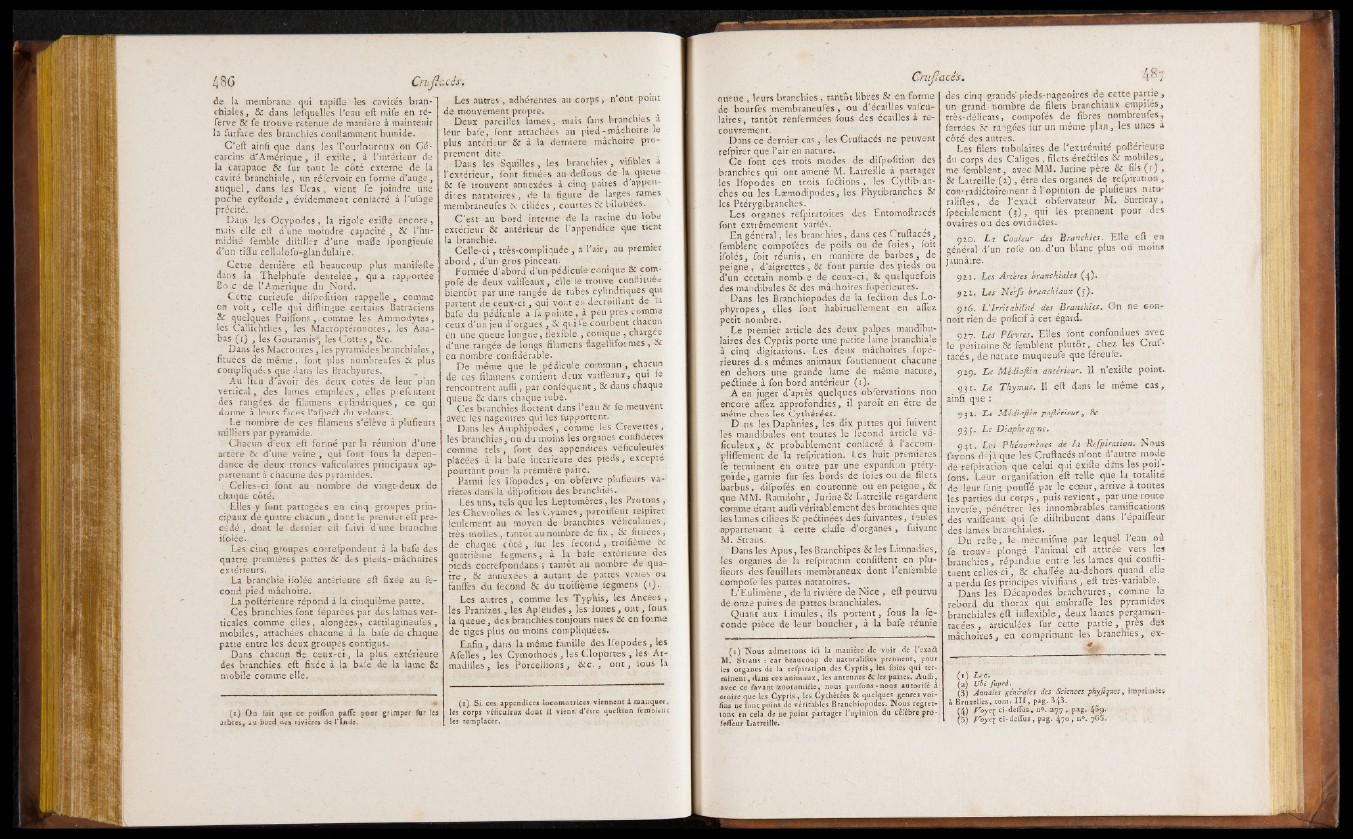 486
Crustacés.
de la membrane qui tapisse les cavités bran-
chiales, & dans lesquelles l'eau est mise en ré-
serve & se trouve retenue de manière à maintenir
la surface des branches constamment humide.
C'est ainsi que dans les Tourlouroux ou Gé-
carcins d'Amérique, il existe, à l'intérieur de
la carapace & sur tout le côté externe de la
cavité branchiale, un réservoir en forme d'auge,
auquel, dans les Ucas, vient se joindre une
poche cystoïde, évidemment consacré à l'usage
précité.
Dans les Ocypodes, la rigole existe encore,
mais elle est d'une moindre capacité, & l'hu-
midité semble distiller d'une masse spongieuse
d'un tissu celluloso-glandulaire.
Cette dernière est beaucoup plus manifeste
dans la Thelphuse dentelée, qu'a rapportée
Bosc de l'Amérique du Nord.
Cette curieuse disposition rappelle, comme
on voit, celle qui distingue certains Batraciens
& quelques Poissons, comme les Ammodytes,
les Callichthes, les Macroptéronotes, les Ana-
bas (1), les Gouramis, les Cottes, &c.
Dans les Macroures, les pyramides branchiales,
situées de même, sont plus nombreuses & plus
compliquées que dans les Brachyures.
Au lieu d'avoir des deux côtés de leur plan
vertical, des lames empilées, elles présentent
des rangées de filamens cylindriques, ce qui
donne à leurs faces l'aspect du velours.
Le nombre de ces filamens s'élève à plusieurs
milliers par pyramide.
Chacun d'eux est formé par la réunion d'une
artère & d'une veine, qui sont sous la dépen-
dance de deux troncs vasculaires principaux ap-
partenant à chacune des pyramides.
Celles-ci sont au nombre de vingt-deux de
chaque côté.
Elles y sont partagées en cinq groupes prin-
cipaux de quatre chacun, dont le premier est pré-
cédé, dont le dernier est suivi d'une branchie
isolée.
Les cinq groupes correspondent à la base des
quatre premières pattes & des pieds-mâchoires
extérieurs.
La branchie isolée antérieure est fixée au se-
cond pied mâchoire.
La postérieure répond à la cinquième patte.
Ces branchies sont séparées par des lames ver-
ticales comme elles, alongées, cartilagineuses,
mobiles, attachées chacune à la base de chaque
patte entre les deux groupes contigus.
Dans chacun de ceux-ci, la plus extérieure
des branchies est fixée à la base de la lame &
mobile comme elle.
(1) On sait que ce poisson passe pour grimper sur les
arbres, au bord des rivières de l'Inde.
Les autres, adhérentes au corps, n'ont point
de mouvement propre.
Deux pareilles lames, mais sans branchies à
leur base, sont attachées au pied-mâchoire le
plus antérieur & à la dernière mâchoire pro-
prement dite.
Dans les Squilles, les branchies, visibles à
l'extérieur, sont situées au-dessous de la queue
& se trouvent annexées à cinq paires d'appen-
dices natatoires, de la figure de larges rames
membraneuses & ciliées, courtes & bilobées.
C'est au bord interne de la racine du lobe
extérieur & antérieur de l'appendice que tient
la branchie.
Celle-ci, très-compliquée, a l'air, au premier
abord, d'un gros pinceau.
Formée d'abord d'un pédicule conique & com-
posé de deux vaisseaux, elle se trouve constituée
bientôt par une rangée de tubes cylindriques qui
partent de ceux-ci, qui vont en décroissant de la
base du pédicule à sa pointe, à peu près comme
ceux d'un jeu d'orgues, & qui se courbent chacun
en une queue longue, flexible, conique, chargée
d'une rangée de longs filamens flagelliformes, &
en nombre considérable.
De même que le pédicule commun, chacun
de ces filamens contient deux vaisseaux, qui se
rencontrent aussi, par conséquent, & dans chaque
queue & dans chaque tube.
Ces branchies flottent dans l'eau & se meuvent
avec les nageoires qui les supportent.
Dans les Amphipodes, comme les Crevettes,
les branchies, ou du moins les organes considérés
comme tels, sont des appendices vésiculeuses
placées à la base intérieure des pieds, excepté
pourtant pour la première paire.
Parmi les Isopodes, on observe plusieurs va-
riétés dans la disposition des branchies.
Les uns, tels que les Leptomères, les Protons,
les Chevrolles & les Cyames, paroissent respirer
seulement au moyen de branchies vésiculaires,
très-molles, tantôt au nombre de six, & situées,
de chaque côté, sur les second, troisième &
quatrième segmens, à la base extérieure des
pieds correspondans; tantôt au nombre de qua-
tre, & annexées à autant de pattes vraies ou
fausses du second & du troisième segmens (1).
Les autres, comme les Typhis, les Ancées,
les Pranizes, les Apseudes, les Iones, ont, sous
la queue, des branchies toujours nues & en forme
de tiges plus ou moins compliquées.
Enfin, dans la même famille des Isopodes, les
Aselles, les Cymothoés, les Cloportes, les Ar-
madilles, les Porcellions, &c., ont, sous la
(1) Si ces appendices locomotrices viennent à manquer,
les corps vésiculeux dont il vient d'être question semblent
les remplacer.
Crustacés.
487
queue, leurs branchies, tantôt libres & en forme
de bourses membraneuses, ou d'écailles vascu-
laires, tantôt renfermées sous des écailles à re-
couvrement.
Dans ce dernier cas, les Crustacés ne peuvent
respirer que l'air en nature.
Ce sont ces trois modes de disposition des
branchies qui ont amené M. Latreille à partager
les Isopodes en trois sections, les Cystibran-
ches ou les Læmodipodes, les Phytibranches &
les Ptérygibranches.
Les organes respiratoires des Entomostracés
sont extrêmement variés.
En général, les branchies, dans ces Crustacés,
semblent composées de poils ou de soies, soit
isolés, soit réunis, en manière de barbes, de
peigne, d'aigrettes, & font partie des pieds ou
d'un certain nombre de ceux-ci, & quelquefois
des mandibules & des mâchoires supérieures.
Dans les Branchiopodes de la section des Lo-
phyropes, elles sont habituellement en assez
petit nombre.
Le premier article des deux palpes mandibu-
laires des Cypris porte une petite lame branchiale
à cinq digitations. Les deux mâchoires supé-
rieures des mêmes animaux soutiennent chacune
en dehors une grande lame de même nature,
pectinée à son bord antérieur (1).
A en juger d'après quelques observations non
encore assez approfondies, il paroît en être de
même chez les Cythérées.
Dans les Daphnies, les dix pattes qui suivent
les mandibules ont toutes le second article vé-
siculeux, & probablement consacré à l'accom-
plissement de la respiration. Les huit premières
se terminent en outre par une expansion ptéry-
goïde, garnie sur ses bords de soies ou de filets
barbus, disposés en couronne ou en peigne, &
que MM. Ramdohr, Jurine & Latreille regardent
comme étant aussi véritablement des branchies que
les lames ciliées & pectinées des suivantes, seules
appartenant à cette classe d'organes, suivant
M. Straus.
Dans les Apus, les Branchipes & les Limnadies,
les organes de la respiration consistent en plu-
sieurs des feuillets membraneux dont l'ensemble
compose les pattes natatoires.
L'Eulimène, de la rivière de Nice, est pourvu
de onze paires de pattes branchiales.
Quant aux Limules, ils portent, sous la se-
conde pièce de leur bouclier, à la base réunie
(1) Nous admettons ici la manière de voir de l'exact
M. Straus: car beaucoup de naturalistes prennent, pour
les organes de la respiration des Cypris, les soies qui ter-
minent, dans ces animaux, les antennes & les pattes. Aussi,
avec ce savant zootomiste, nous pensons-nous autorisé à
croire que les Cypris, les Cythérées & quelques genres voi-
sins ne sont point de véritables Branchiopodes. Nous regret-
tons en cela de ne point partager l'opinion du célèbre pro-
fesseur Latreille.
des cinq grands pieds-nageoires de cette partie,
un grand nombre de filets branchiaux empilés,
très-délicats, composés de fibres nombreuses,
serrées & rangées sur un même plan, les unes à
côté des autres.
Les filets tubulaires de l'extrémité postérieure
du corps des Caliges, filets érectiles & mobiles,
me semblent, avec MM. Jurine père & fils (1),
& Latreille (2), être des organes de respiration,
contradictoirement à l'opinion de plusieurs natu-
ralistes, de l'exact observateur M. Surriray,
spécialement (3), qui les prennent pour des
ovaires ou des oviductes.
920. La Couleur des Branchies. Elle est en
général d'un rose ou d'un blanc plus ou moins
jaunâtre.
921. Les Artères branchiales (4).
922. Les Nerfs branchiaux (5).
926. L'Irritabilité des Branchies. On ne con-
noit rien de positif à cet égard.
927. Les Plèvres. Elles sont confondues avec
le péritoine & semblent plutôt, chez les Crus-
tacés, de nature muqueuse que séreuse.
929. Le Médiastin antérieur. Il n'existe point.
931. Le Thymus. Il est dans le même cas,
ainsi que:
932. Le Médiastin postérieur, &
933. Le Diaphragme.
935. Les Phénomènes de la Respiration. Nous
savons déjà que les Crustacés n'ont d'autre mode
de respiration que celui qui existe dans les pois-
sons. Leur organisation est telle que la totalité
de leur sang poussé par le cœur, arrive à toutes
les parties du corps, puis revient, par une route
inverse, pénétrer les innombrables ramifications
des vaisseaux qui se distribuent dans l'épaisseur
des lames branchiales.
Du reste, le mécanisme par lequel l'eau où
se trouve plongé l'animal est attirée vers les
branchies, répandue entre les lames qui consti-
tuent celles-ci, & chassée au-dehors quand elle
a perdu ses principes vivifians, est très-variable.
Dans les Décapodes brachyures, comme le
rebord du thorax qui embrasse les pyramides
branchiales est inflexible, deux lames pergamen-
tacées, articulées sur cette partie, près des
mâchoires, en comprimant les branchies, ex-
(1) L. c.
(2) Ubi suprà.
(3) Annales générales des Sciences physiques, imprimées
à Bruxelles, tom. III, pag. 343.
(4) Voyez ci-dessus, n°. 277, pag. 459.
(5) Voyez ci-dessus, pag. 470, n°. 765.